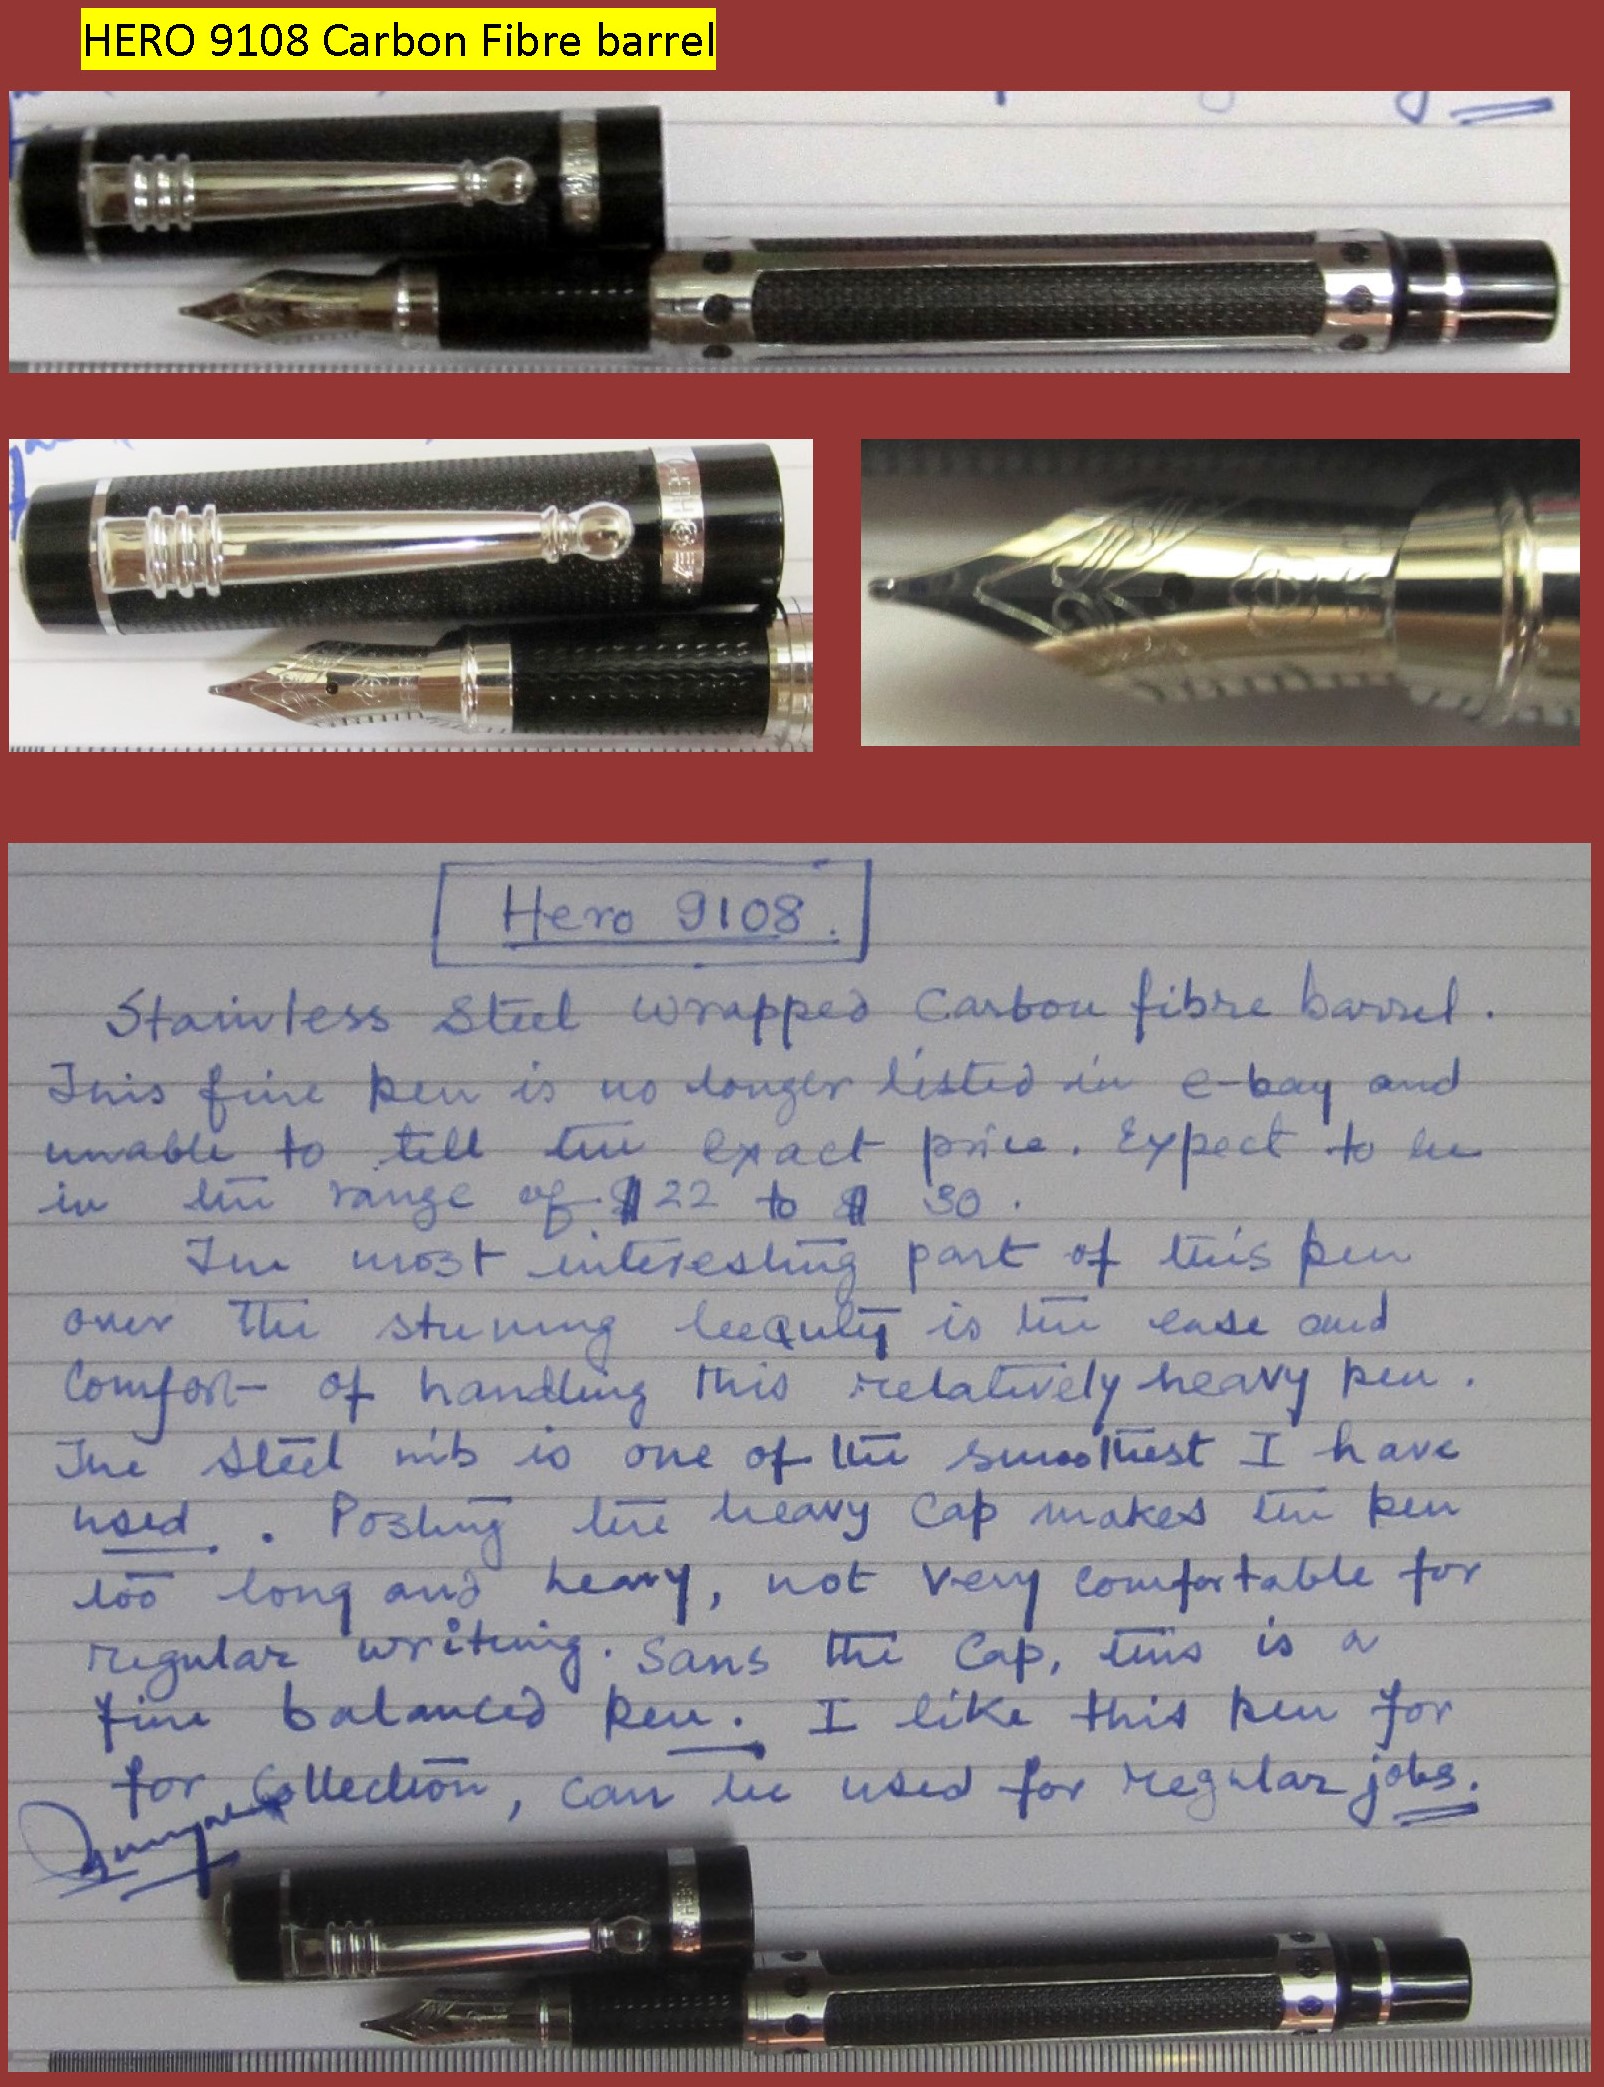 HERO 9108 Carbon Fibre barrel
HERO
HERO
Hero 9108.
Stainless Steel wrapped Carbon fibre barrel.
This fine pen is no longer listed in e-bay and
unable to tell the exact price. Expect to be
in the range of $22 to $ 30.
The most interesting part of this pen
over the stunning beauty is the ease and
Comfort of handling this relatively heavy pen.
The Steel nib is one of the smoothest I have
used. Posting the heavy Cap makes the pen
too long and heavy, not very comfortable for
regular writing. Sans the Cap, this is a
fine balanced pen. I like this pen for
for Collection, can be used for regular jobs.
HERO